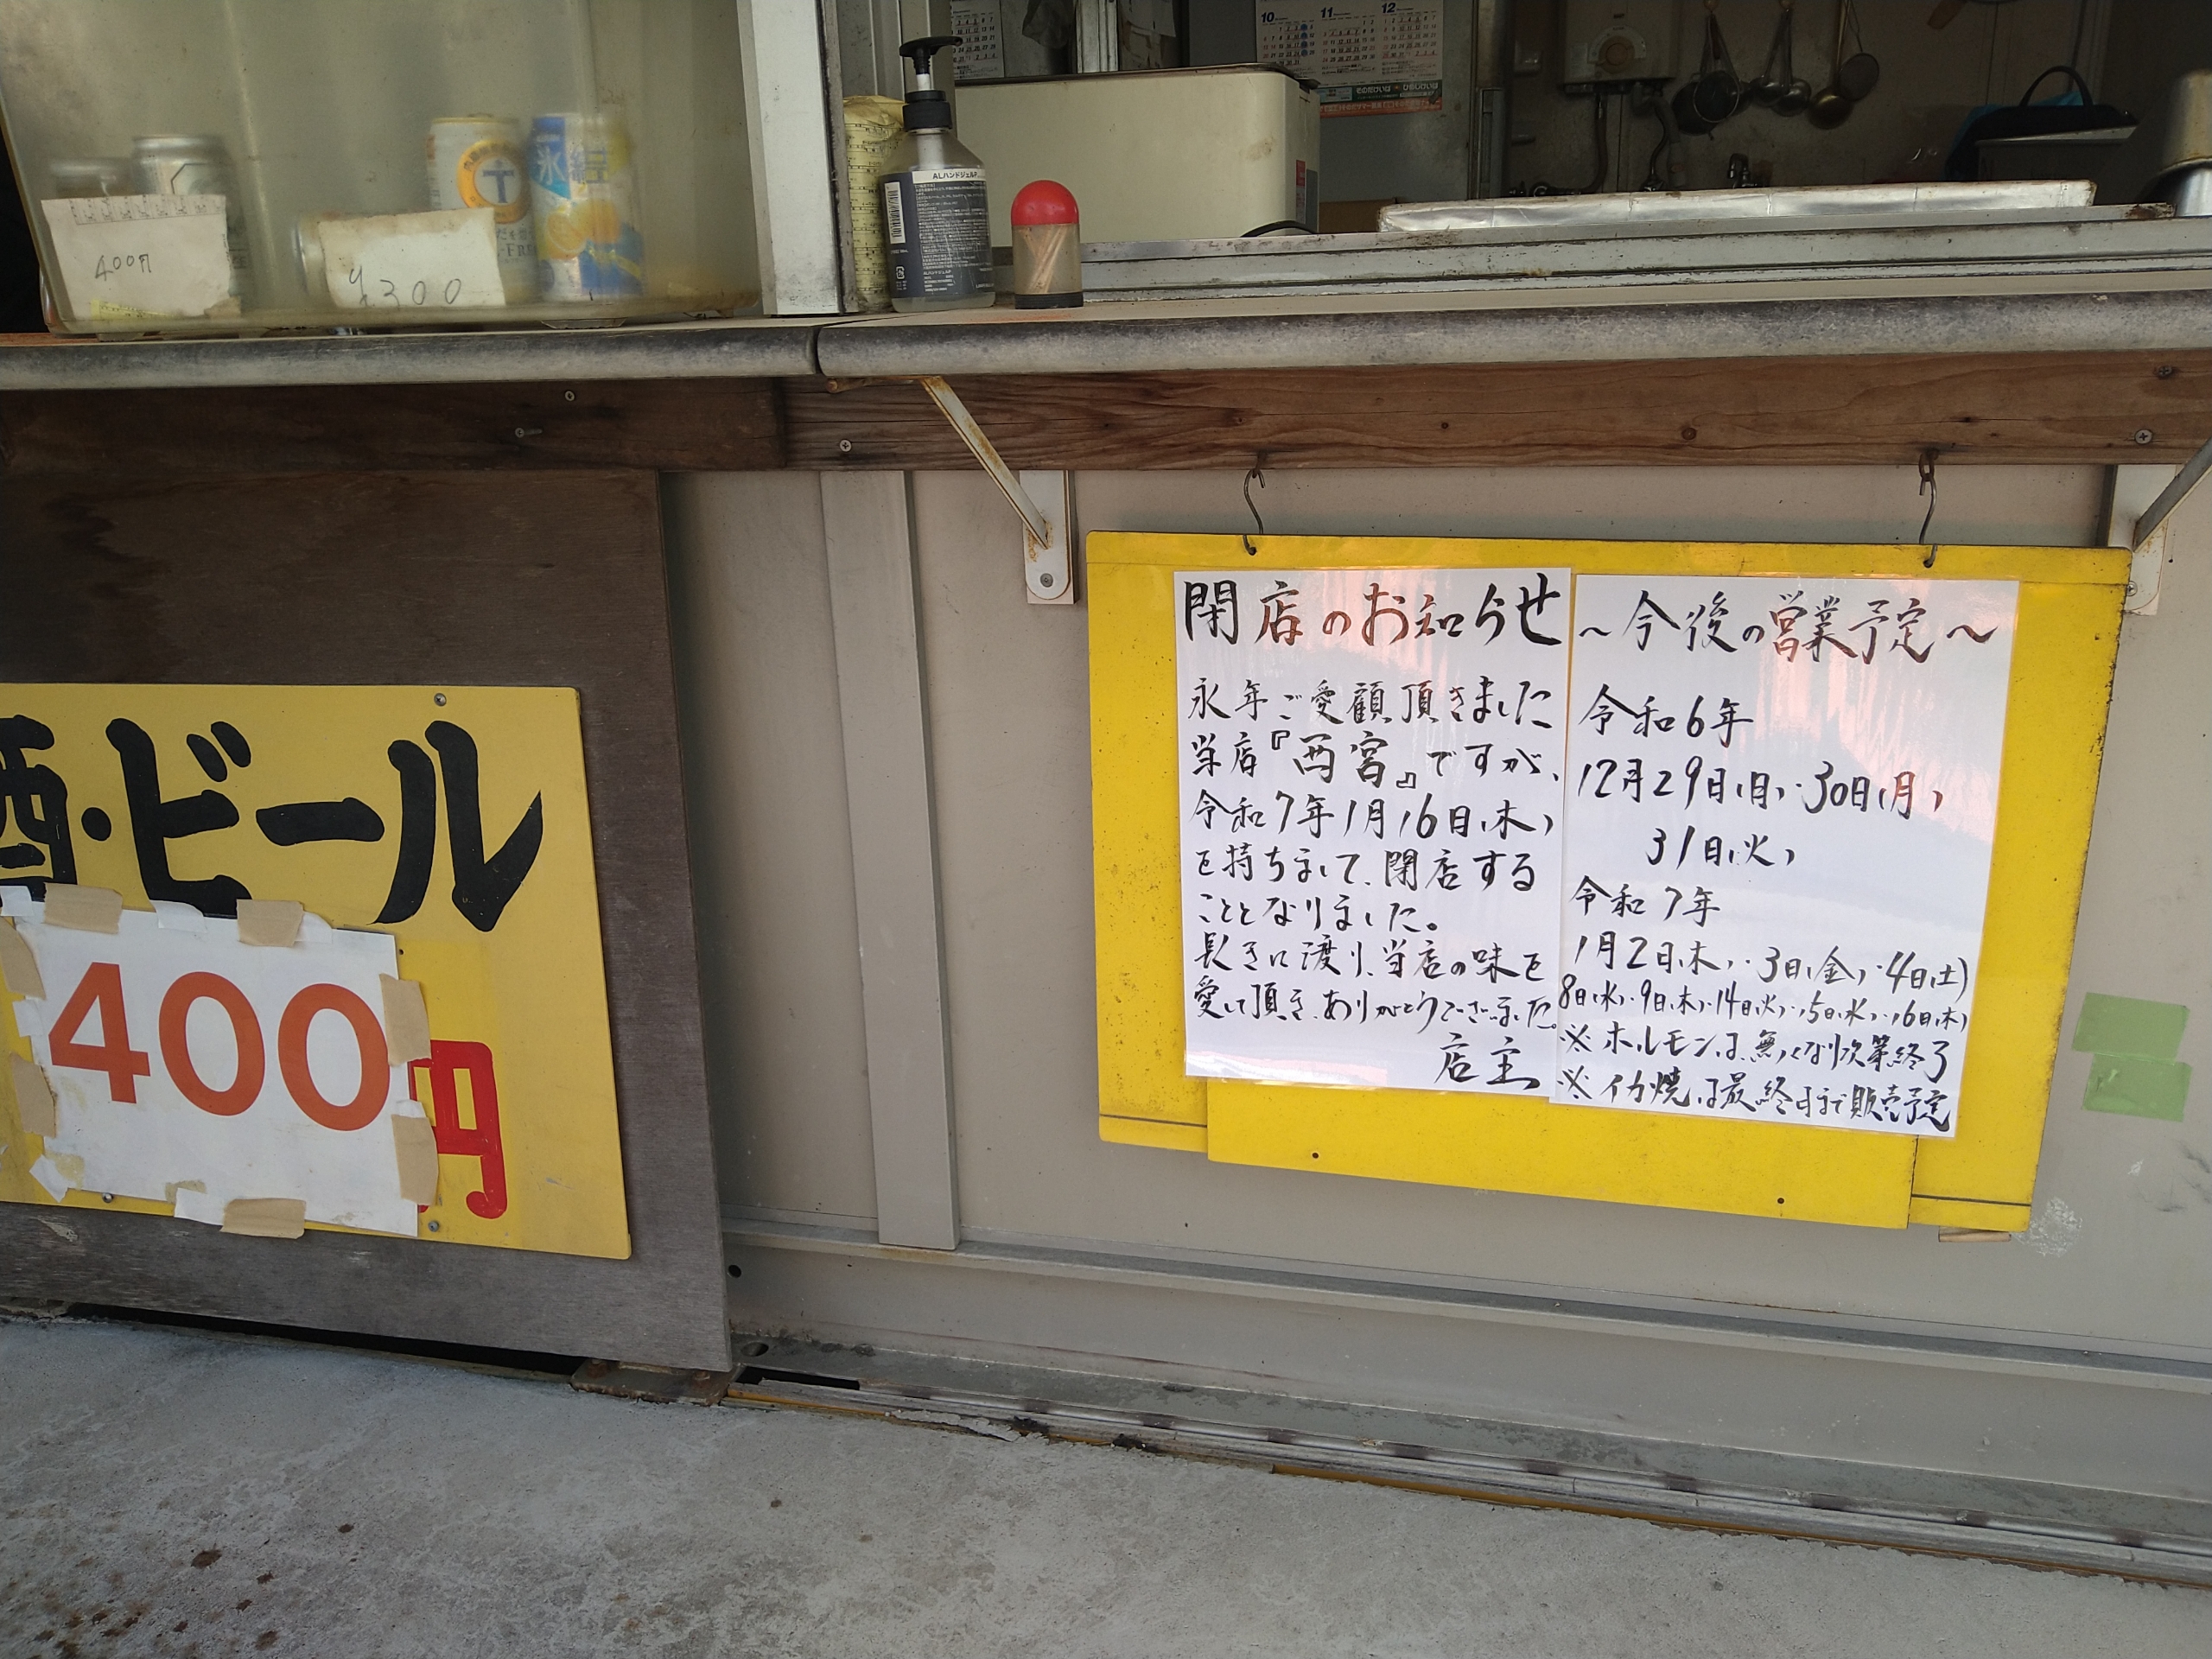 400円
¥300
氷結
ALハンドジェルP
10
11
12
酒・ビール
400
円
閉店のお知らせ
永年ご愛顧頂きました
当店『西宮』ですが、
令和7年1月16日(木)
を持ちまして、閉店する
こととなりました。
長きに渡り、当店の味を
愛して頂き、ありがとうございました。
店主
～今後の営業予定～
令和6年
12月29日(日)・30日(月)
31日(火)
令和7年
1月2日(木)・3日(金)・4日(土)
8日(水)・9日(木)・14日(火)・15日(水)・16日(木)
※ホルモンは、無くなり次第終了
※イカ焼は最終日まで販売予定